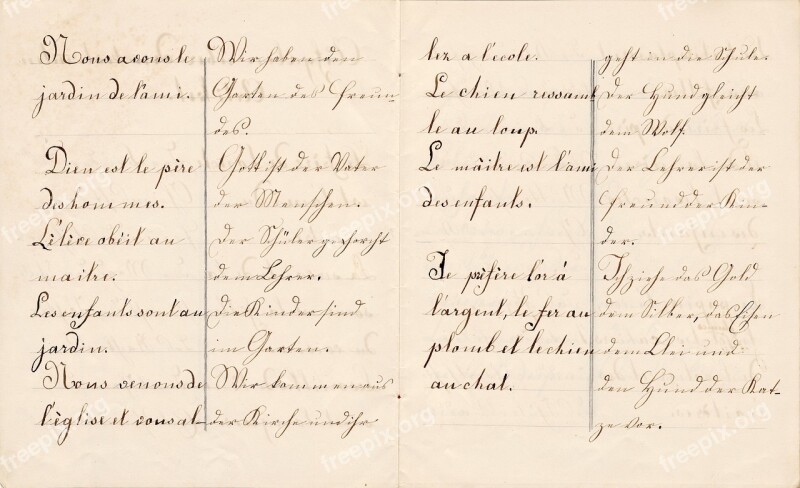 Nous avons le
jardin de l'ami.
Dieu est le père
des hommes.
L'élève obéit au
maitre.
Les enfants sont au
jardin.
Nous venons de
l'église et vous al-
Wir haben den
Garten des Freun-
des.
Gott ist der Vater
der Menschen.
Der Schüler gehorcht
dem Lehrer.
Die Kinder sind
im Garten.
Wir kommen aus
der Kirche und ihr
lez a l'ecole.
Le chien ressemb
le au loup.
Le màitre est l'ami
des enfants.
Je préfère l'or á
l'argent, le fer au
plomb et le chien
au chat.
geht in die Schule.
Der Hund gleicht
dem Wolf.
Der Lehrer ist der
Freund der Kin-
der.
Ich ziehe das Gold
dem Silber, das Eisen
dem Blei und
den Hund der Kat-
ze vor.
freepix.org